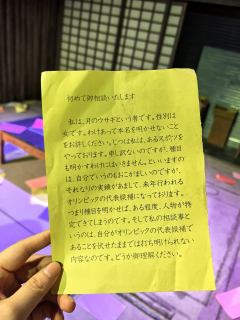 初めて御相談いたします
私は、月のウサギという者です。性別は
女です。わけあって本名を明かせないこと
をお許しください。じつは私は、あるスポーツを
やっております。申し訳ないのですが、種目
も明かすわけにはいきません。といいますの
は、自分でいうのもおこがましいのですが、
それなりの実績がありまして、来年行われる
オリンピックの代表候補になっております。
つまり種目を明かせば、ある程度、人物が特
定できてしまうのです。そして私の相談事と
いうのは、自分がオリンピックの代表候補で
あることを伏せたままでは打ち明けられない
内容なのです。どうか御理解ください。